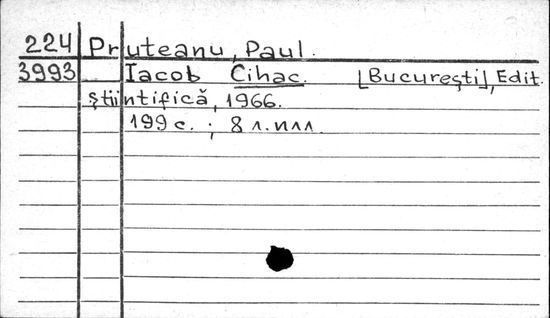 224 Pruteanu, Paul.
3993 Iacob Cihac. [Bucureşti], Edit.
ştiintifică, 1966.
199 с. ; 8 л. илл.